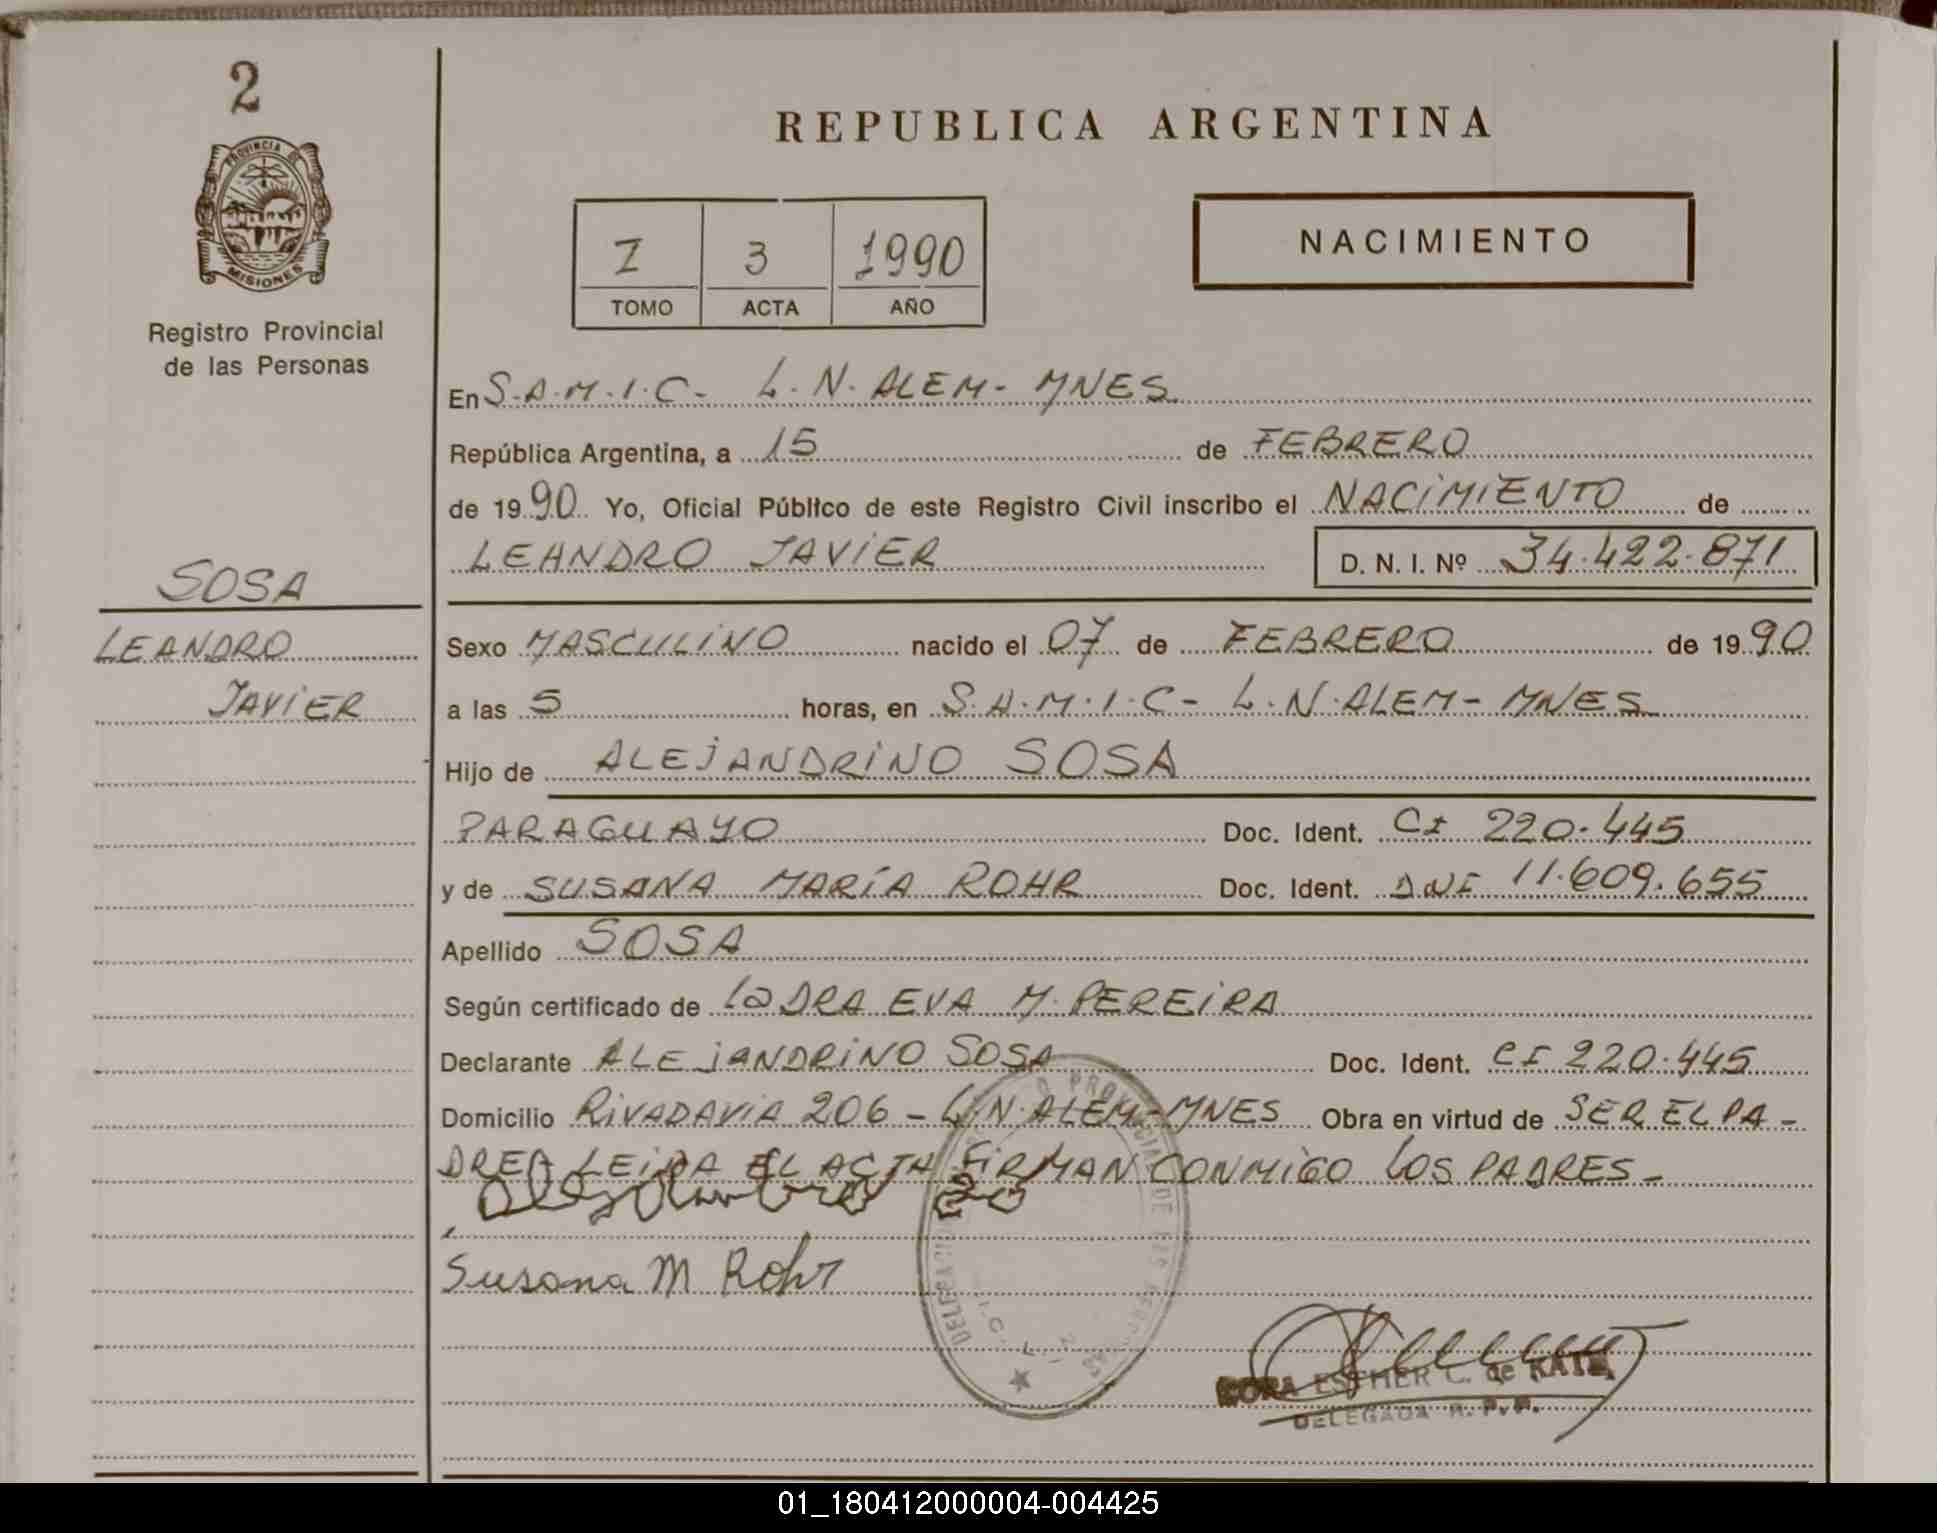 2
PROVINCIA DE
MISIONES
Registro Provincial
de las Personas
SOSA
LEANDRO
JAVIER
REPUBLICA ARGENTINA
I 3 1990
TOMO ACTA AÑO
NACIMIENTO
En S.A.M.I.C- L.N.ALEM- MNES
República Argentina, a 15 de FEBRERO
de 1990 Yo, Oficial Público de este Registro Civil inscribo el NACIMIENTO de
LEANDRO JAVIER D. N. I. Nº 34.422.871
Sexo MASCULINO nacido el 07 de FEBRERO de 1990
a las 5 horas, en S.A.M.I.C- L.N.ALEM- MNES
Hijo de ALEJANDRINO SOSA
PARAGUAYO Doc. Ident. CI 220.445
y de SUSANA MARÍA ROHR Doc. Ident. DNI 11.609.655
Apellido SOSA
Según certificado de La DRA EVA M. PEREIRA
Declarante ALEJANDRINO SOSA Doc. Ident. CI 220.445
Domicilio RIVADAVIA 206 - L.N.ALEM-MNES Obra en virtud de SER EL PA-
DRE. LEIDA EL ACTA FIRMAN CONMIGO LOS PADRES-
Susana M Rohr
ESTHER C. de KATZ
DELEGADA R. P. P.
01_180412000004-004425